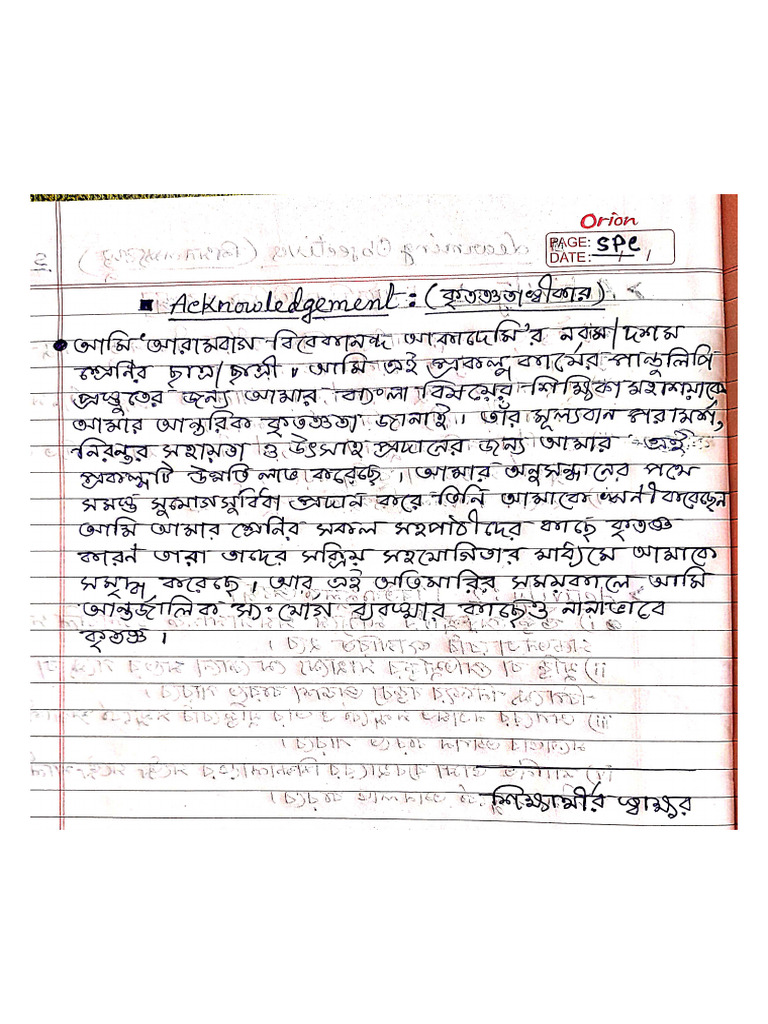 Orion
PAGE: SPC
DATE: / /
■ Acknowledgement : (কৃতজ্ঞতাস্বীকার)
● আমি 'আরামবাগ বিবেকানন্দ আকাদেমি'র নবম/দশম
শ্রেনির ছাত্র/ছাত্রী। আমি এই প্রকল্প কার্যের পান্ডুলিপি
প্রস্তুতের জন্য আমার বাংলা বিষয়ের শিক্ষিকা মহাশয়াকে
আমার আন্তরিক কৃতজ্ঞতা জানাই। তাঁর মূল্যবান পরামর্শ,
নিরন্তর সহায়তা ও উৎসাহ প্রদানের জন্য আমার এই
প্রকল্পটি উন্নতি লাভ করেছে। আমার অনুসন্ধানের পথে
সমস্ত সুযোগসুবিধা প্রদান করে তিনি আমাকে
আমি আমার শ্রেনির সকল সহপাঠীদের কাছে কৃতজ্ঞ
কারণ তারা তাদের সক্রিয় সহযোগিতার মাধ্যমে আমাকে
সমৃদ্ধ করেছে। আর এই অতিমারির সময়কালে আমি
আন্তর্জালিক সংযোগ ব্যবস্থার কাছেও নানাভাবে
কৃতজ্ঞ।
শিক্ষার্থীর স্বাক্ষর